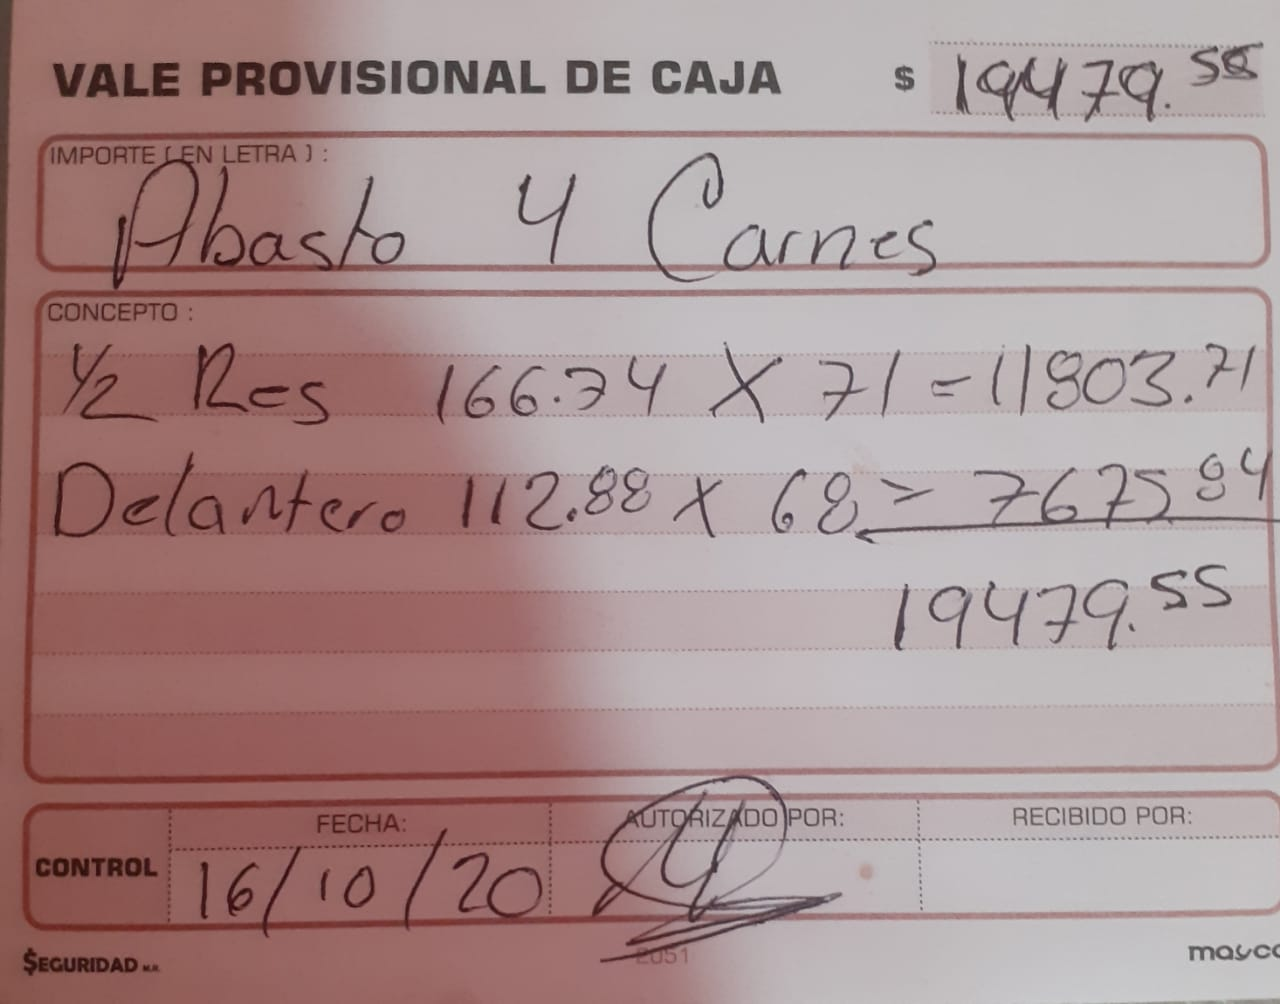 VALE PROVISIONAL DE CAJA $ 19479.55
IMPORTE ( EN LETRA ) :
Abasto 4 Carnes
CONCEPTO :
1/2 Res 166.74 X 71 = 11803.71
Delantero 112.88 x 68 = 7675.84
19479.55
FECHA: AUTORIZADO POR: RECIBIDO POR:
CONTROL 16/10/20 4
$EGURIDAD M.R. 2051